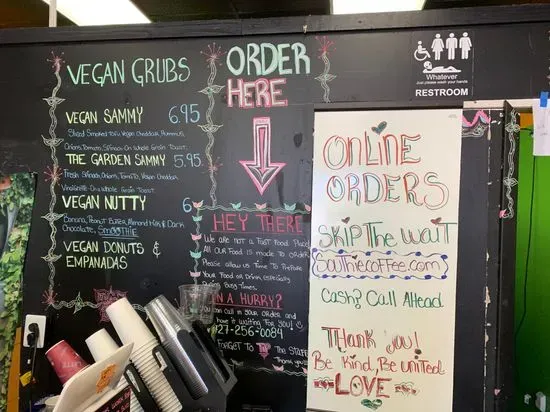 VEGAN GRUBS
VEGAN SAMMY 6.95
Sliced Smoked Tofu, Vegan Cheddar, Hummus,
Onions, Tomato, Spinach On Whole Grain Toast.
THE GARDEN SAMMY 5.95
Fresh Spinach, Onions, Tomato, Vegan Cheddar,
Vinaigrette On a Whole Grain Toast
VEGAN NUTTY 6
Banana, Peanut Butter, Almond Milk & Dark
Chocolate, SMOOTHIE
VEGAN DONUTS &
EMPANADAS
ORDER
HERE
HEY THERE
We are not a Fast Food Place
All OUR Food IS made to ORDER
Please allow us Time To Prepare
Your Food or Drink especially
During Busy Times.
IN A HURRY?
You can call in your order and
have it waiting For You!
727-256-0084
FORGET TO TIP THE STAFF
Thank you!!!
Whatever
Just please wash your hands
RESTROOM
ONLINE
ORDERS
SKIP The WAIT
Cash? Call Ahead
THank you!
Be Kind, Be united
LOVE